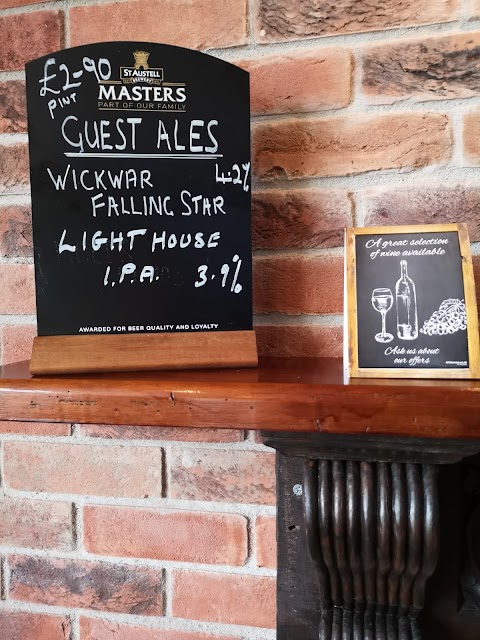 £2-90
PINT
ST AUSTELL
BREWERY
MASTERS
PART OF OUR FAMILY
GUEST ALES
WICKWAR 4.2%
FALLING STAR
LIGHTHOUSE
I.P.A. 3.9%
AWARDED FOR BEER QUALITY AND LOYALTY
A great selection
of wine available
Ask us about
our offers